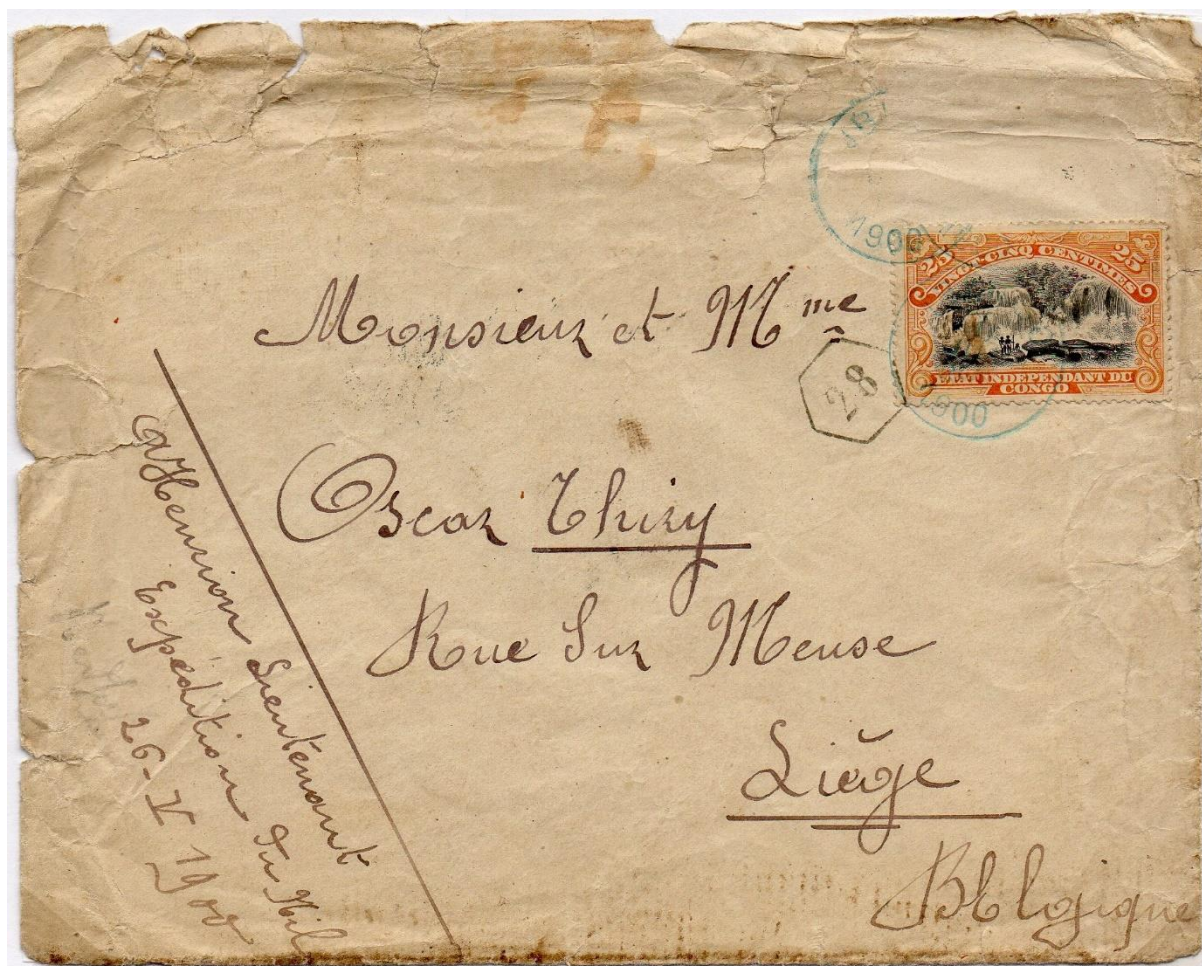 1900
25 25
VINGT-CINQ CENTIMES
ETAT INDEPENDANT DU
CONGO
1900
28
Monsieur et Mme
Oscar Thiry
Rue Sur Meuse
Liège
Belgique
Henrion Lieutenant
Expédition du Nil
26-V 1900